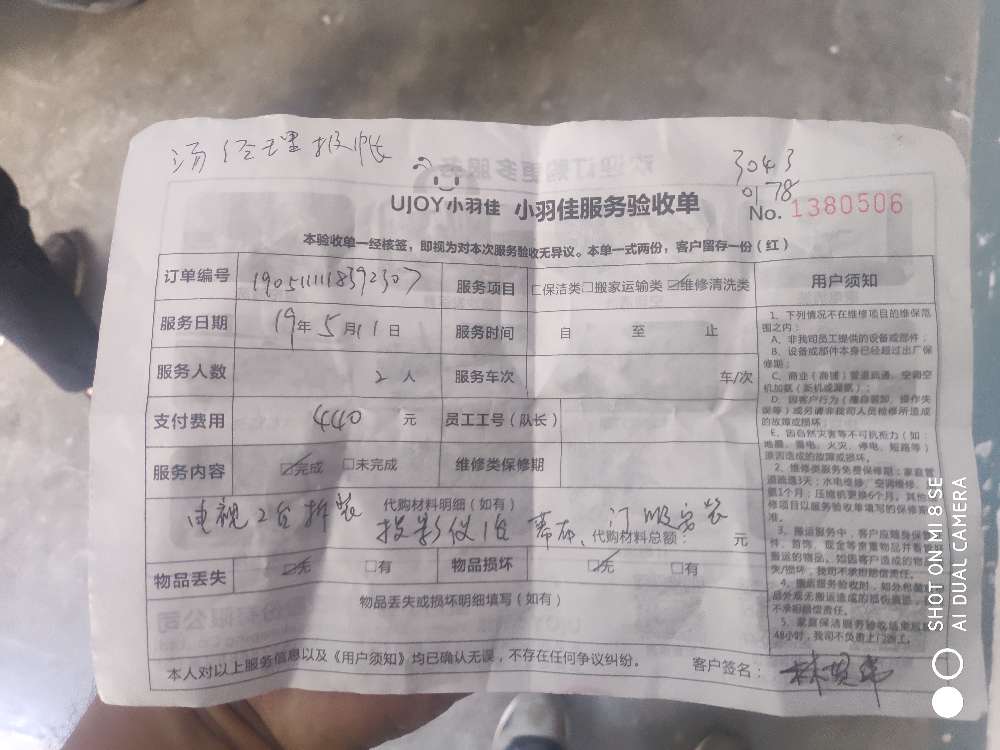 汤经理报帐
3043
0178
UJOY小羽佳 小羽佳服务验收单
No. 1380506
本验收单一经核签，即视为对本次服务验收无异议。本单一式两份，客户留存一份（红）
订单编号 190511118392307 服务项目 □保洁类□搬家运输类☑维修清洗类
服务日期 19年5月11日 服务时间 自 至 止
服务人数 2人 服务车次 车/次
支付费用 440 元 员工工号（队长）
服务内容 ☑完成 □未完成 维修类保修期
代购材料明细（如有）
电视2台拆装 投影仪1台 幕布、门吸安装
代购材料总额： 元
物品丢失 ☑无 □有 物品损坏 ☑无 □有
物品丢失或损坏明细填写（如有）
本人对以上服务信息以及《用户须知》均已确认无误，不存在任何争议纠纷。 客户签名：
用户须知
1、下列情况不在维修项目的维保范
围之内：
A、非我司员工提供的设备或部件；
B、设备或部件本身已经超过出厂保
修期；
C、商业（商铺）管道疏通、空调空
机加氨（新机或漏氨）；
D、因客户行为（擅自装卸、操作失
误等）或另请非我司人员检修所造成
的故障或损坏
E、因自然灾害等不可抗拒力（如：
地震、雷电、火灾、停电、短路等）
原因造成的故障或损坏。
2、维修类服务免费保修期：家庭管
道疏通3天；水电维修、空调维修、
氨1个月；压缩机更换6个月，其他
修项目以服务验收单填写的保修期
准。
3、搬运服务中，客户应随身保
件、首饰、现金等贵重物品并看管
搬运的物品。如因客户造成的物
失/损坏，我司不承担赔偿责任。
4、搬运服务验收时，如分包装
品外观无搬运造成的损伤痕迹，
不承担赔偿责任。
5、家庭保洁服务验收结束后
48小时，我司不负责上门返工。
SHOT ON MI 8 SE
AI DUAL CAMERA